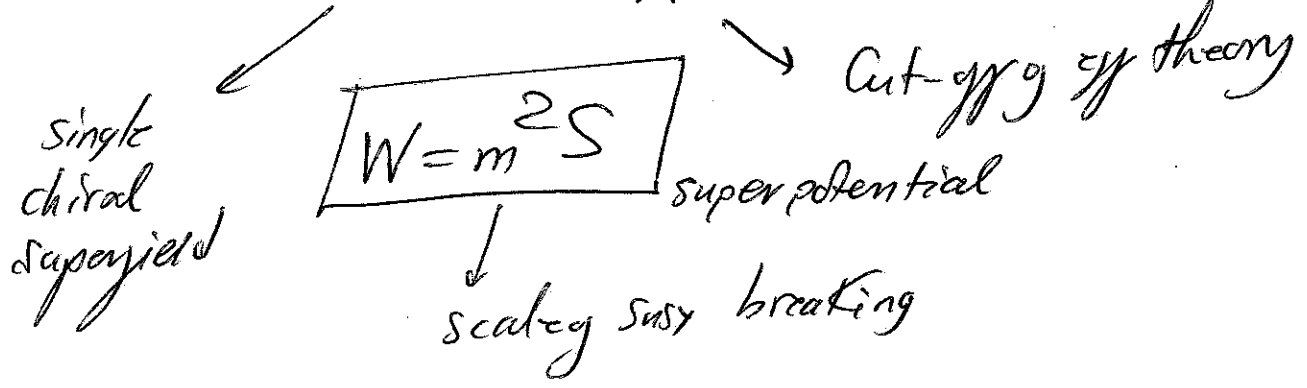 Cut-off of eff theory
single
chiral
superfield
W = m²S
superpotential
scale of susy breaking